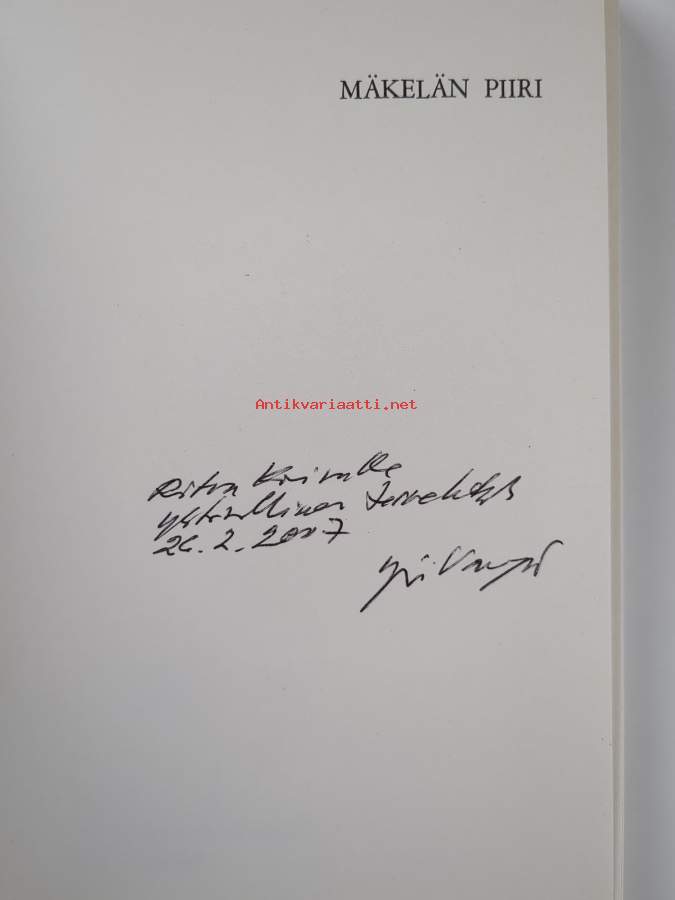 MÄKELÄN PIIRI
Antikvariaatti.net
Ritva
ystävällinen tervehdys
26.2.2007